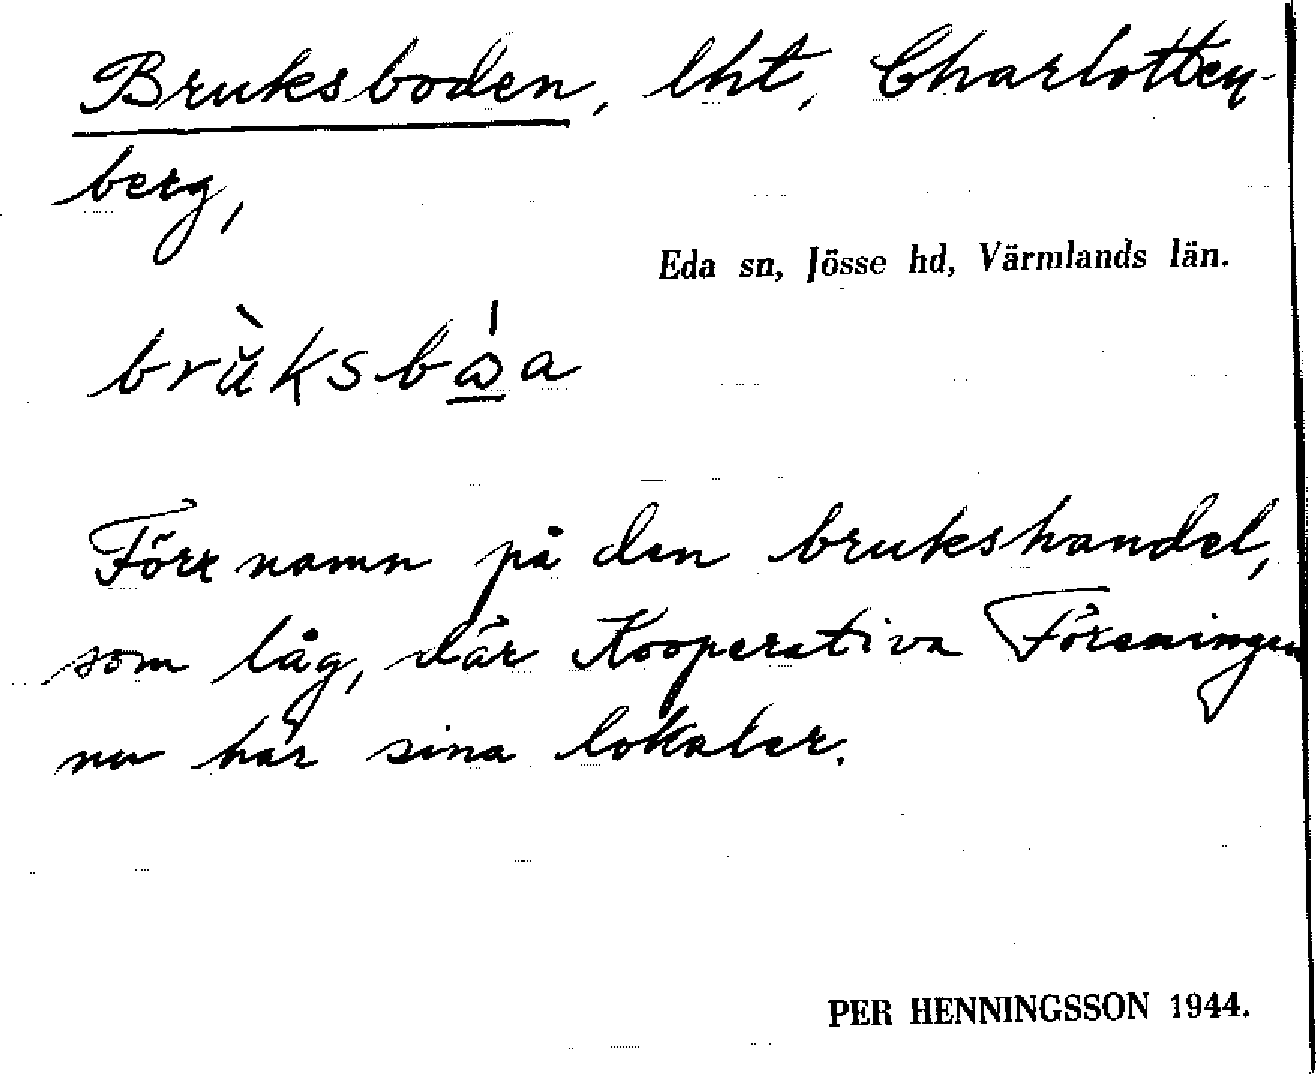 Bruksboden, lht, Charlotten-
berg,
Eda sn, Jösse hd, Värmlands län.
Förr namn på den brukshandel,
som låg, där Kooperativa Föreningen
nu har sina lokaler.
PER HENNINGSSON 1944.